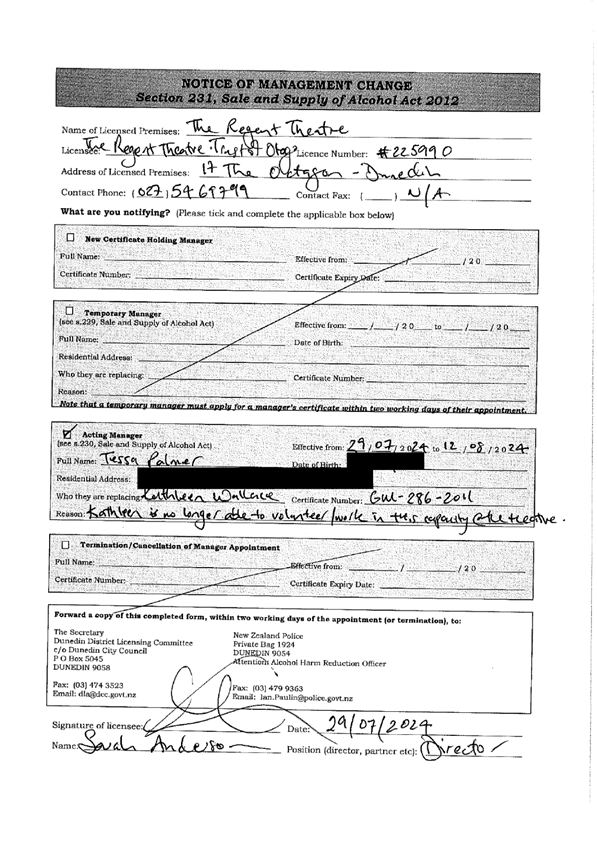 NOTICE OF MANAGEMENT CHANGE
Section 231, Sale and Supply of Alcohol Act 2012
Name of Licensed Premises: The Regent Theatre
Licensee: The Regent Theatre Trust of Otago Licence Number: #225990
Address of Licensed Premises: 17 The Octagon - Dunedin
Contact Phone: (027) 5469799 Contact Fax: ( ) N/A
What are you notifying? (Please tick and complete the applicable box below)
New Certificate Holding Manager
Full Name: Effective from: / / 20
Certificate Number: Certificate Expiry Date:
Temporary Manager
(see s.229, Sale and Supply of Alcohol Act) Effective from: / / 20 to / / 20
Full Name: Date of Birth:
Residential Address:
Who they are replacing: Certificate Number:
Reason:
Note that a temporary manager must apply for a manager's certificate within two working days of their appointment.
Acting Manager
(see s.230, Sale and Supply of Alcohol Act) Effective from: 29/07/2024 to 12/08/2024
Full Name: Tessa Palmer Date of Birth:
Residential Address:
Who they are replacing: Kathleen Wallace Certificate Number: GM-286-2011
Reason: Kathleen is no longer able to volunteer/work in this capacity @ the theatre.
Termination/Cancellation of Manager Appointment
Full Name: Effective from: / / 20
Certificate Number: Certificate Expiry Date:
Forward a copy of this completed form, within two working days of the appointment (or termination), to:
The Secretary
Dunedin District Licensing Committee
c/o Dunedin City Council
P O Box 5045
DUNEDIN 9058
Fax: (03) 474 3523
Email: dla@dcc.govt.nz
New Zealand Police
Private Bag 1924
DUNEDIN 9054
Attention: Alcohol Harm Reduction Officer
Fax: (03) 479 9363
Email: Ian.Paulin@police.govt.nz
Signature of licensee: Date: 29/07/2024
Name: Sarah Anderson Position (director, partner etc): Director